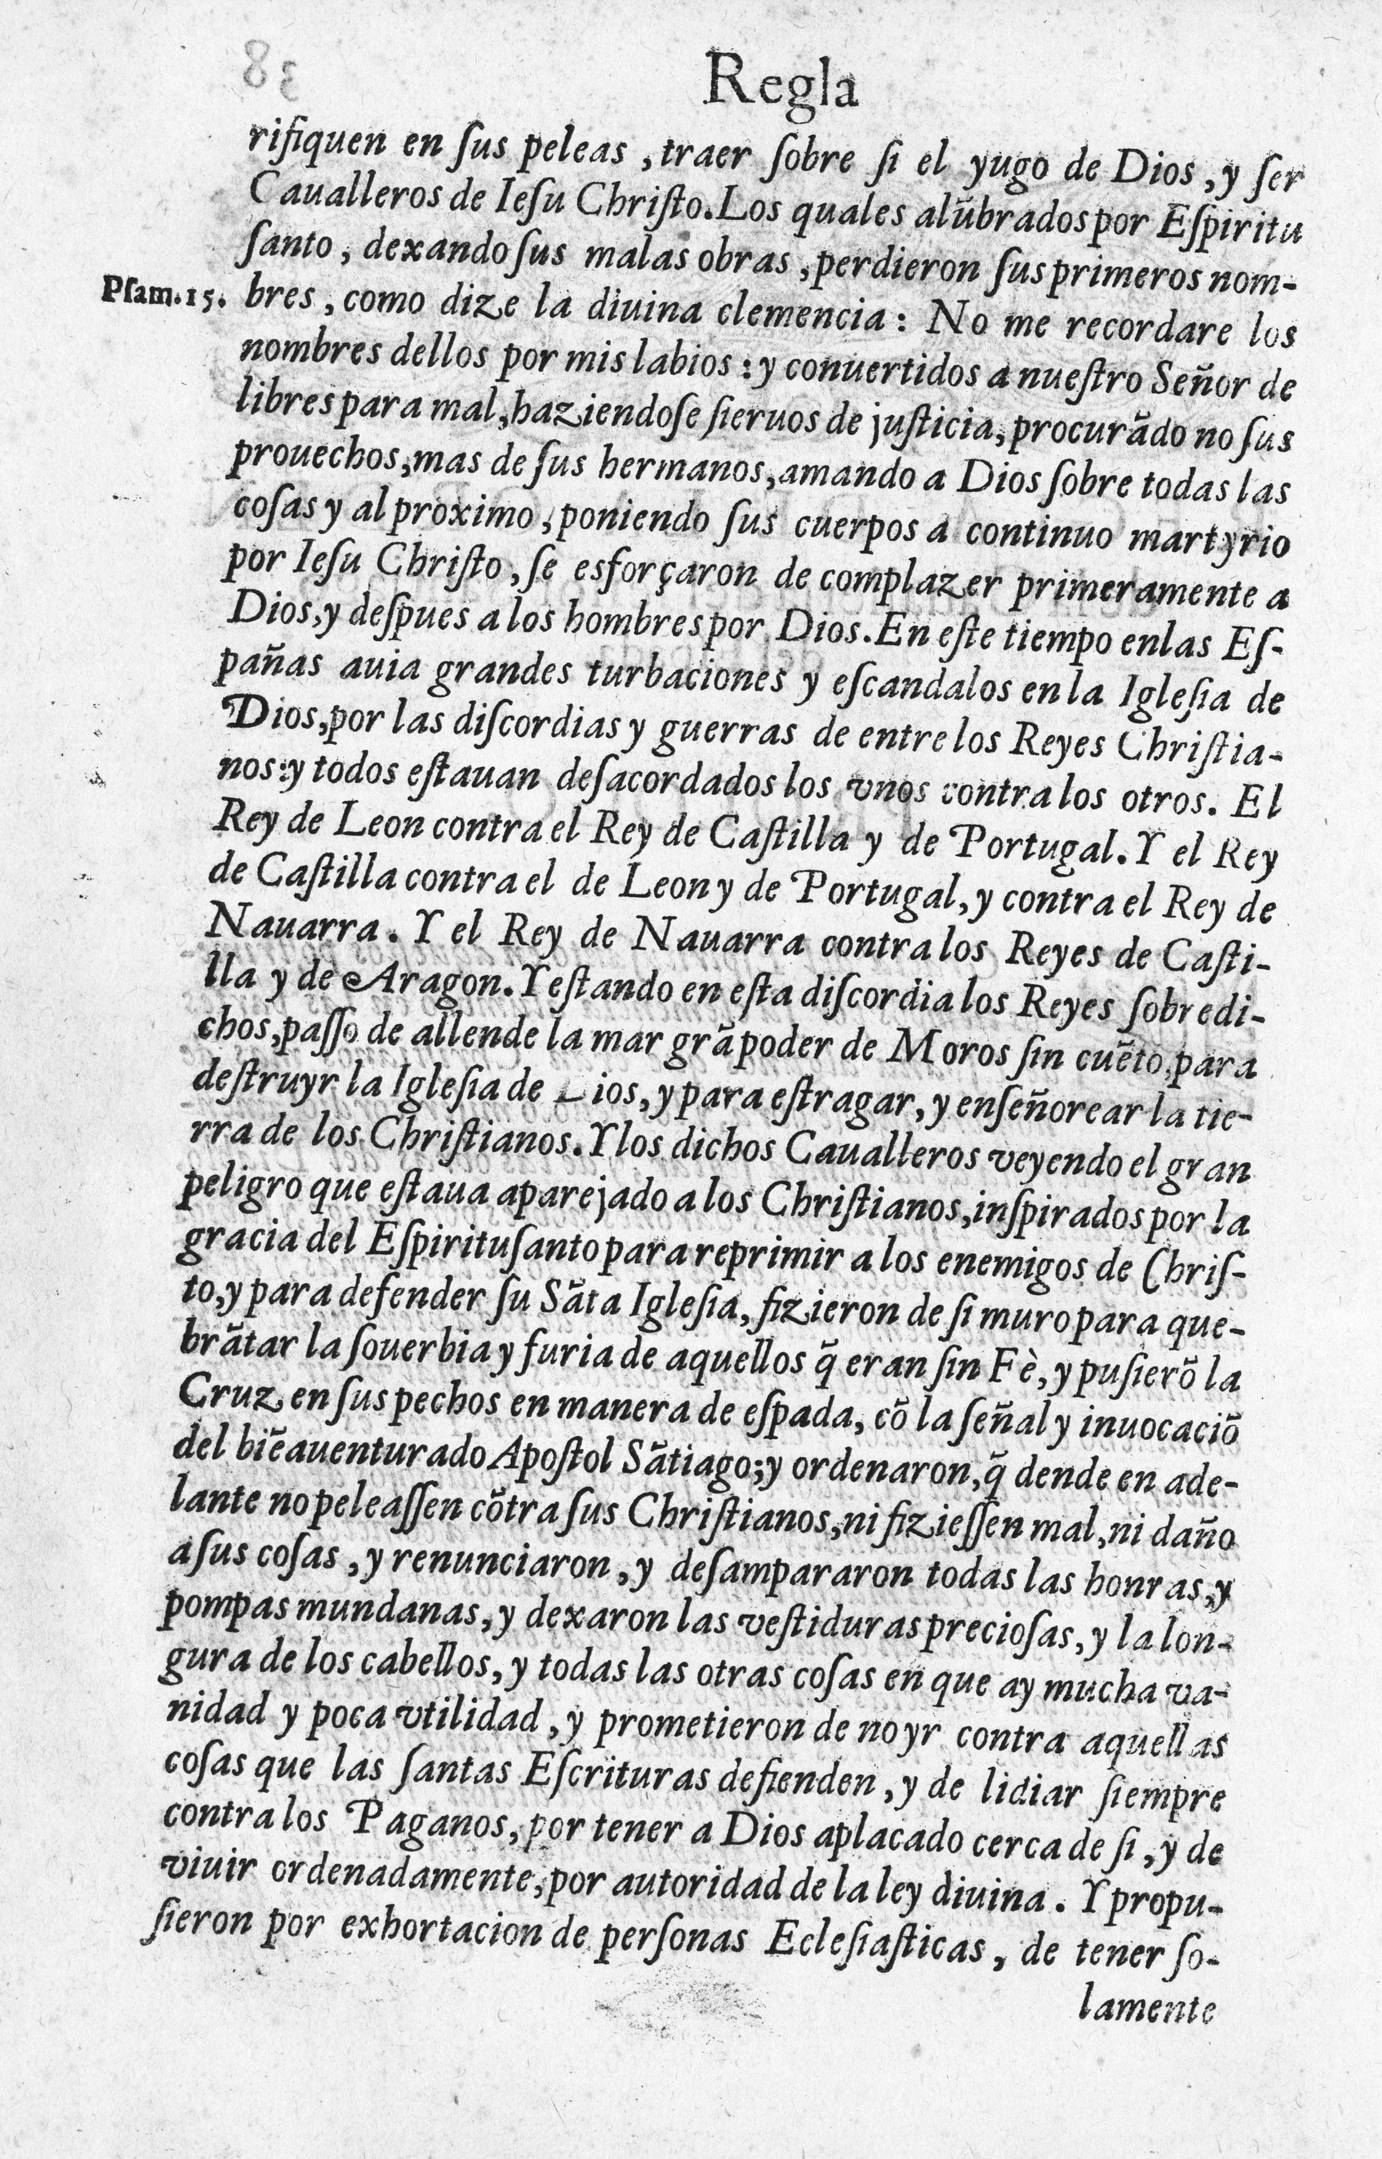 Regla
rifiquen en ſus peleas, traer ſobre ſi el yugo de Dios, y ſer
Caualleros de Ieſu Chriſto. Los quales alũbrados por Eſpiritu
ſanto, dexando ſus malas obras, perdieron ſus primeros nom-
Pſam. 15. bres, como dize la diuina clemencia: No me recordare los
nombres dellos por mis labios: y conuertidos a nueſtro Señor de
libres para mal, haziendoſe ſieruos de juſticia, procurãdo no ſus
prouechos, mas de ſus hermanos, amando a Dios ſobre todas las
coſas y al proximo, poniendo ſus cuerpos a continuo martyrio
por Ieſu Chriſto, ſe esforçaron de complazer primeramente a
Dios, y deſpues a los hombres por Dios. En eſte tiempo en las Eſ-
pañas auia grandes turbaciones y eſcandalos en la Igleſia de
Dios, por las diſcordias y guerras de entre los Reyes Chriſtia-
nos: y todos eſtauan deſacordados los vnos contra los otros. El
Rey de Leon contra el Rey de Caſtilla y de Portugal. Y el Rey
de Caſtilla contra el de Leon y de Portugal, y contra el Rey de
Nauarra. Y el Rey de Nauarra contra los Reyes de Caſti-
lla y de Aragon. Y eſtando en eſta diſcordia los Reyes ſobredi-
chos, paſſo de allende la mar grã poder de Moros ſin cuẽto, para
deſtruyr la Igleſia de Dios, y para eſtragar, y enſeñorear la tie-
rra de los Chriſtianos. Y los dichos Caualleros veyendo el gran
peligro que eſtaua aparejado a los Chriſtianos, inſpirados por la
gracia del Eſpirituſanto para reprimir a los enemigos de Chriſ-
to, y para defender ſu Sãta Igleſia, fizieron de ſi muro para que-
brãtar la ſouerbia y furia de aquellos q̃ eran ſin Fè, y puſierõ la
Cruz en ſus pechos en manera de eſpada, cõ la ſeñal y inuocaciõ
del biẽauenturado Apoſtol Sãtiago; y ordenaron, q̃ dende en ade-
lante no peleaſſen cõtra ſus Chriſtianos, ni fizieſſen mal, ni daño
a ſus coſas, y renunciaron, y deſampararon todas las honras, y
pompas mundanas, y dexaron las veſtiduras precioſas, y la lon-
gura de los cabellos, y todas las otras coſas en que ay mucha va-
nidad y poca vtilidad, y prometieron de no yr contra aquellas
coſas que las ſantas Eſcrituras defienden, y de lidiar ſiempre
contra los Paganos, por tener a Dios aplacado cerca de ſi, y de
viuir ordenadamente, por autoridad de la ley diuina. Y propu-
ſieron por exhortacion de perſonas Ecleſiaſticas, de tener ſo-
lamente